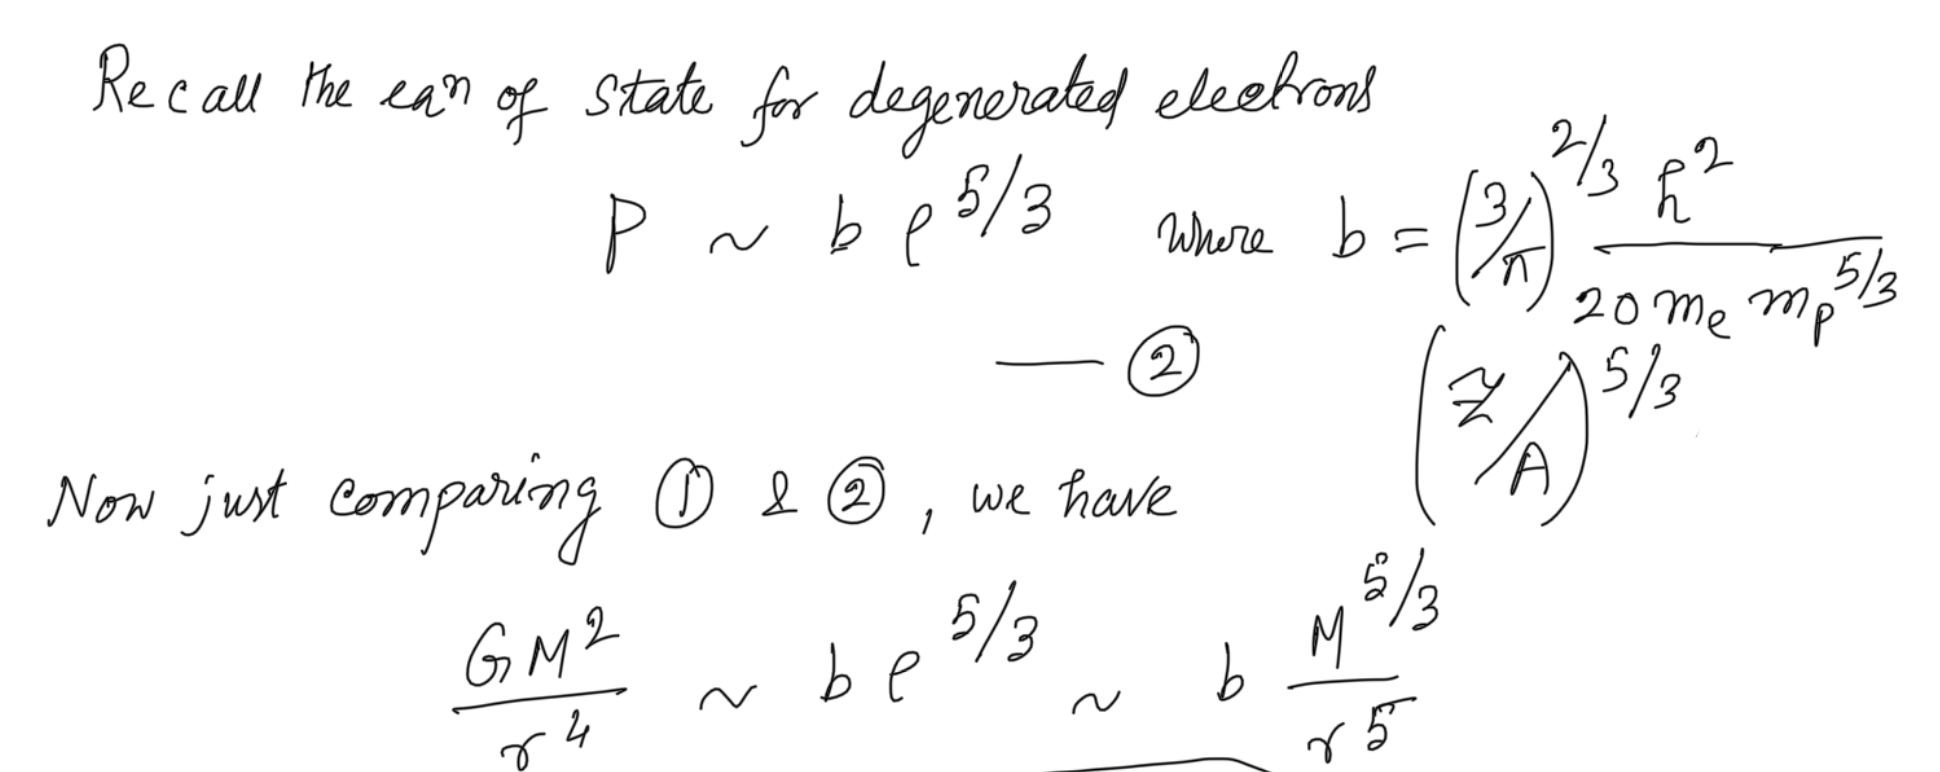 Recall the eqn of state for degenerated electrons
P ~ b ρ^5/3 where b = (3/π)^2/3 h^2 / 20 m_e m_p^5/3
— ② (Z/A)^5/3
Now just comparing ① & ②, we have
GM^2 / r^4 ~ b ρ^5/3 ~ b M^5/3 / r^5